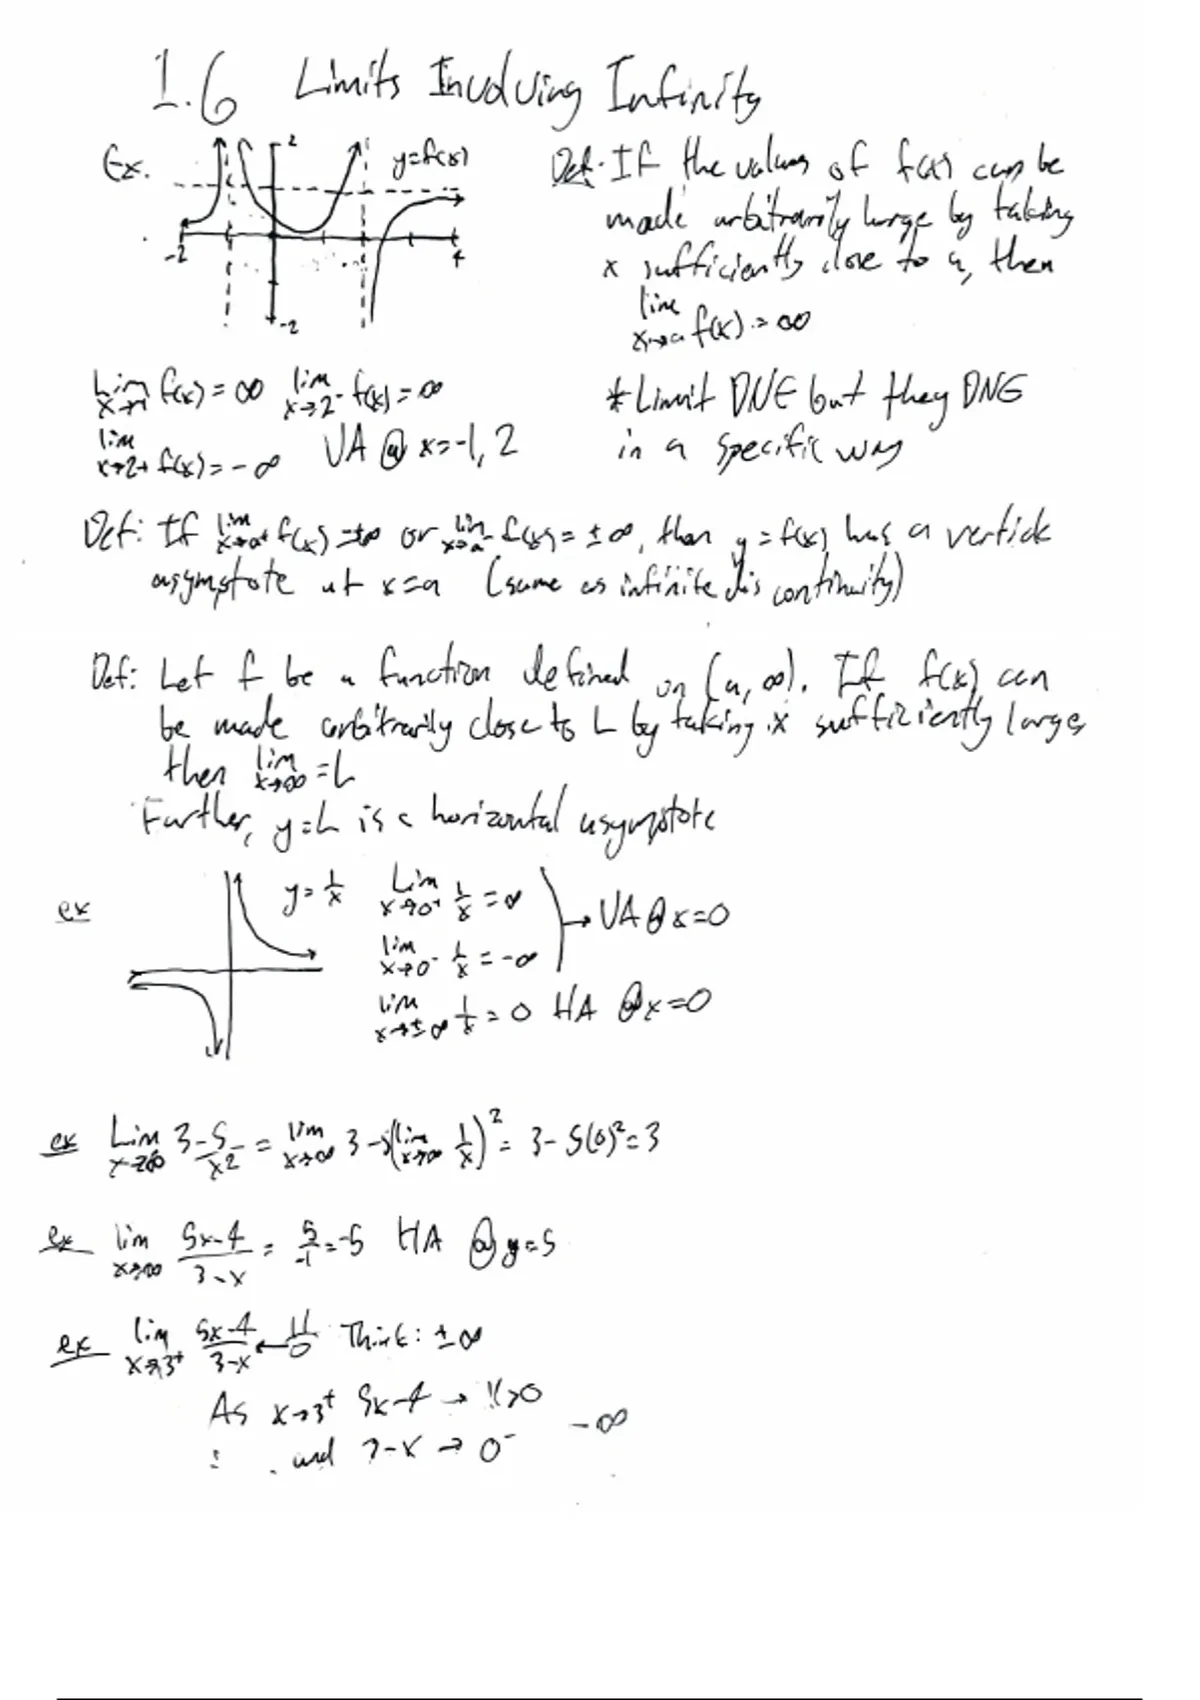 1.6 Limits Involving Infinity
Ex.
2
y=f(x)
-2
4
-2
Def: If the values of f(x) can be
made arbitrarily large by taking
x sufficiently close to a, then
lim x→a f(x) = ∞
lim x→-1 f(x) = ∞ lim x→2⁻ f(x) = ∞
lim x→2+ f(x) = -∞ VA @ x=-1, 2
* Limit DNE but they DNE
in a specific way
Def: If lim x→a⁺ f(x) = ±∞ or lim x→a⁻ f(x) = ±∞, then y = f(x) has a vertical
asymptote at x=a (same as infinite discontinuity)
Def: Let f be a function defined on (a, ∞). If f(x) can
be made arbitrarily close to L by taking x sufficiently large,
then lim x→∞ = L
Further, y=L is a horizontal asymptote
ex
y = 1/x
Lim x→0⁺ 1/x = ∞
lim x→0⁻ 1/x = -∞
→ VA @ x=0
lim x→±∞ 1/x = 0 HA @ x=0
ex Lim x→∞ 3 - 5/x² = lim x→∞ 3 - 5(lim x→∞ 1/x)² = 3 - 5(0)² = 3
ex lim x→∞ (5x-4)/(3-x) = 5/-1 = -5 HA @ y=5
ex lim x→3⁺ (5x-4)/(3-x) ← 11/0 Think: ±∞
As x→3⁺ 5x-4 → 11>0
and 3-x → 0⁻
-∞